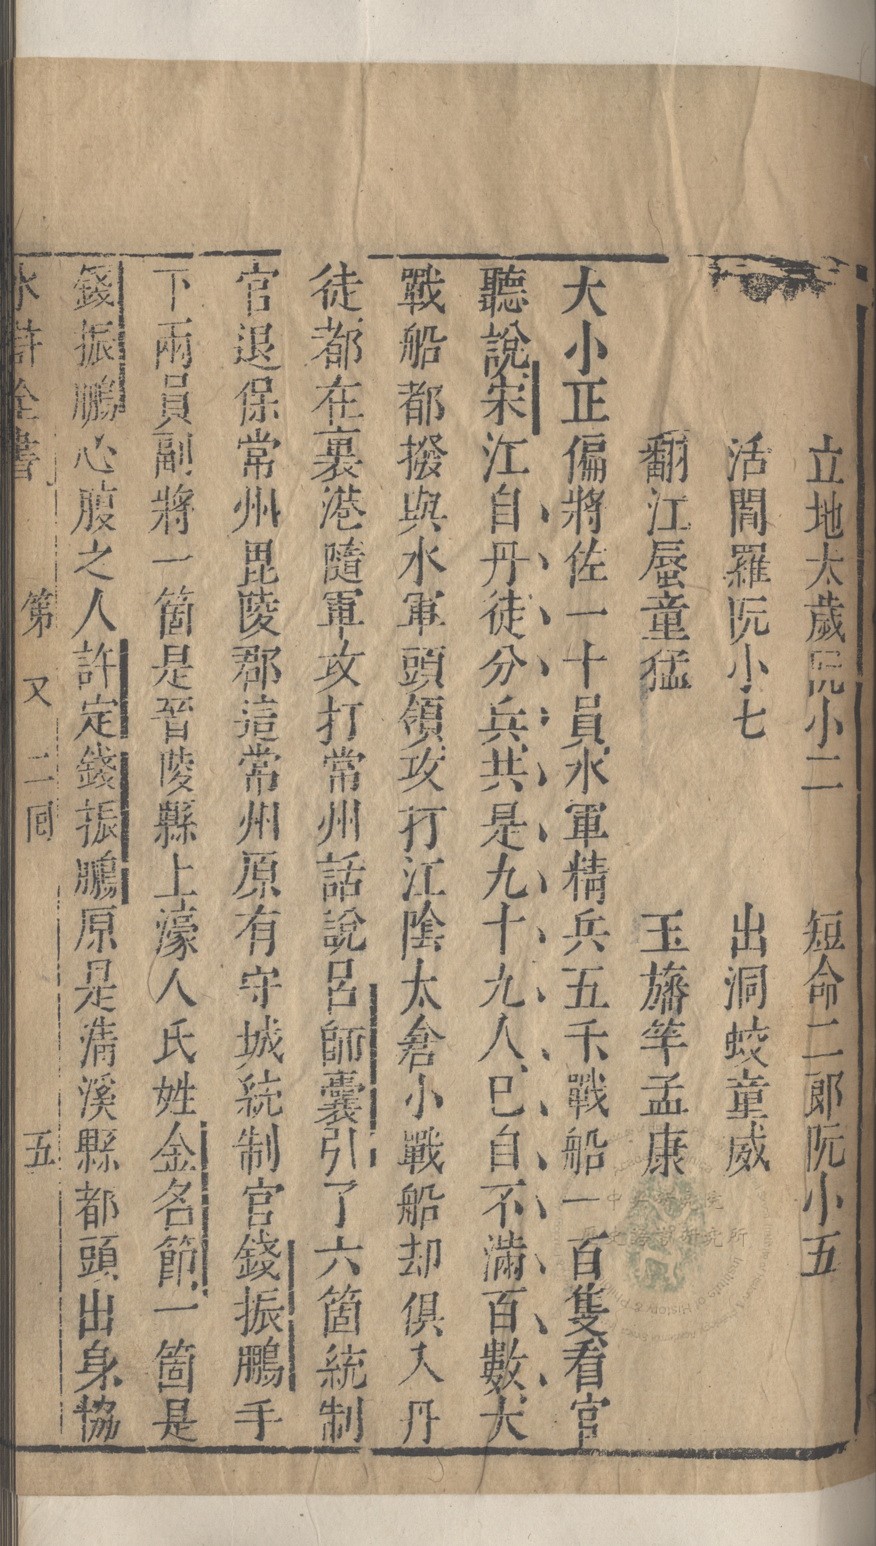 立地太歲阮小二　短命二郎阮小五
活閻羅阮小七　出洞蛟童威
翻江蜃童猛　玉旛竿孟康
大小正偏將佐一十員水軍精兵五千戰船一百隻看官
聽說宋江自丹徒分兵共是九十九人已自不滿百數大
戰船都撥與水軍頭領攻打江陰太倉小戰船却俱入丹
徒都在裏港隨軍攻打常州話說呂師囊引了六箇統制
官退保常州毘陵郡這常州原有守城統制官錢振鵬手
下兩員副將一箇是晉陵縣上濠人氏姓金名節一箇是
錢振鵬心腹之人許定錢振鵬原是清溪縣都頭出身協
水滸全書　第又二回　五
歷史語言研究所